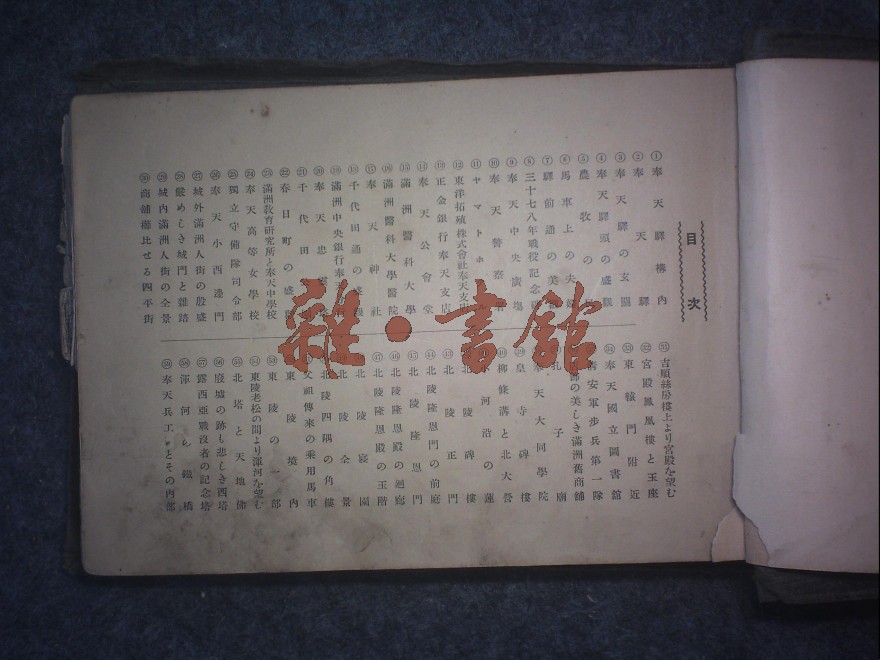 目次
① 奉天驛構內
② 奉天驛
③ 奉天驛の玄關
④ 奉天驛頭の盛觀
⑤ 農牧の
⑥ 馬車上の夫
⑦ 驛前通の美
⑧ 三十七八年戰役記念
⑨ 奉天中央廣場
⑩ 奉天警察署
⑪ ヤマトホ
⑫ 東洋拓殖株式會社奉天支
⑬ 正金銀行奉天支店
⑭ 奉天公會堂
⑮ 滿洲醫科大學
⑯ 滿洲醫科大學醫院
⑰ 奉天神社
⑱ 千代田通の盛觀
⑲ 滿洲中央銀行奉
⑳ 奉天忠靈
㉑ 千代田
㉒ 春日町の盛
㉓ 滿洲敎育硏究所と奉天中學校
㉔ 奉天高等女學校
㉕ 獨立守備隊司令部
㉖ 奉天小西邊門
㉗ 城外滿洲人街の殷盛
㉘ 嚴めしき城門と雜踏
㉙ 城內滿洲人街の全景
㉚ 商舖櫛比せる四平街
㉛ 吉順絲房樓上より宮殿を望む
㉜ 宮殿鳳凰樓と玉座
㉝ 東轅門附近
㉞ 奉天國立圖書館
安軍步兵第一隊
飾の美しき滿洲舊商舖
孔子廟
奉天大同學院
皇寺碑樓
㊵ 柳條溝と北大營
河沿の蓮
北陵碑樓
㊸ 北陵正門
㊹ 北陵隆恩門の前庭
㊺ 北陵隆恩門
㊻ 北陵隆恩殿の廻廊
㊼ 北陵隆恩殿の玉階
北陵寢園
北陵全景
北陵四隅の角樓
父祖傳來の乘用馬車
東陵境內
東陵の一部
東陵老松の間より渾河を望む
北塔と天地佛
廢墟の跡も悲しき西塔
露西亞戰沒者の記念塔
渾河鐵橋
奉天兵工廠とその內部
雜•書館